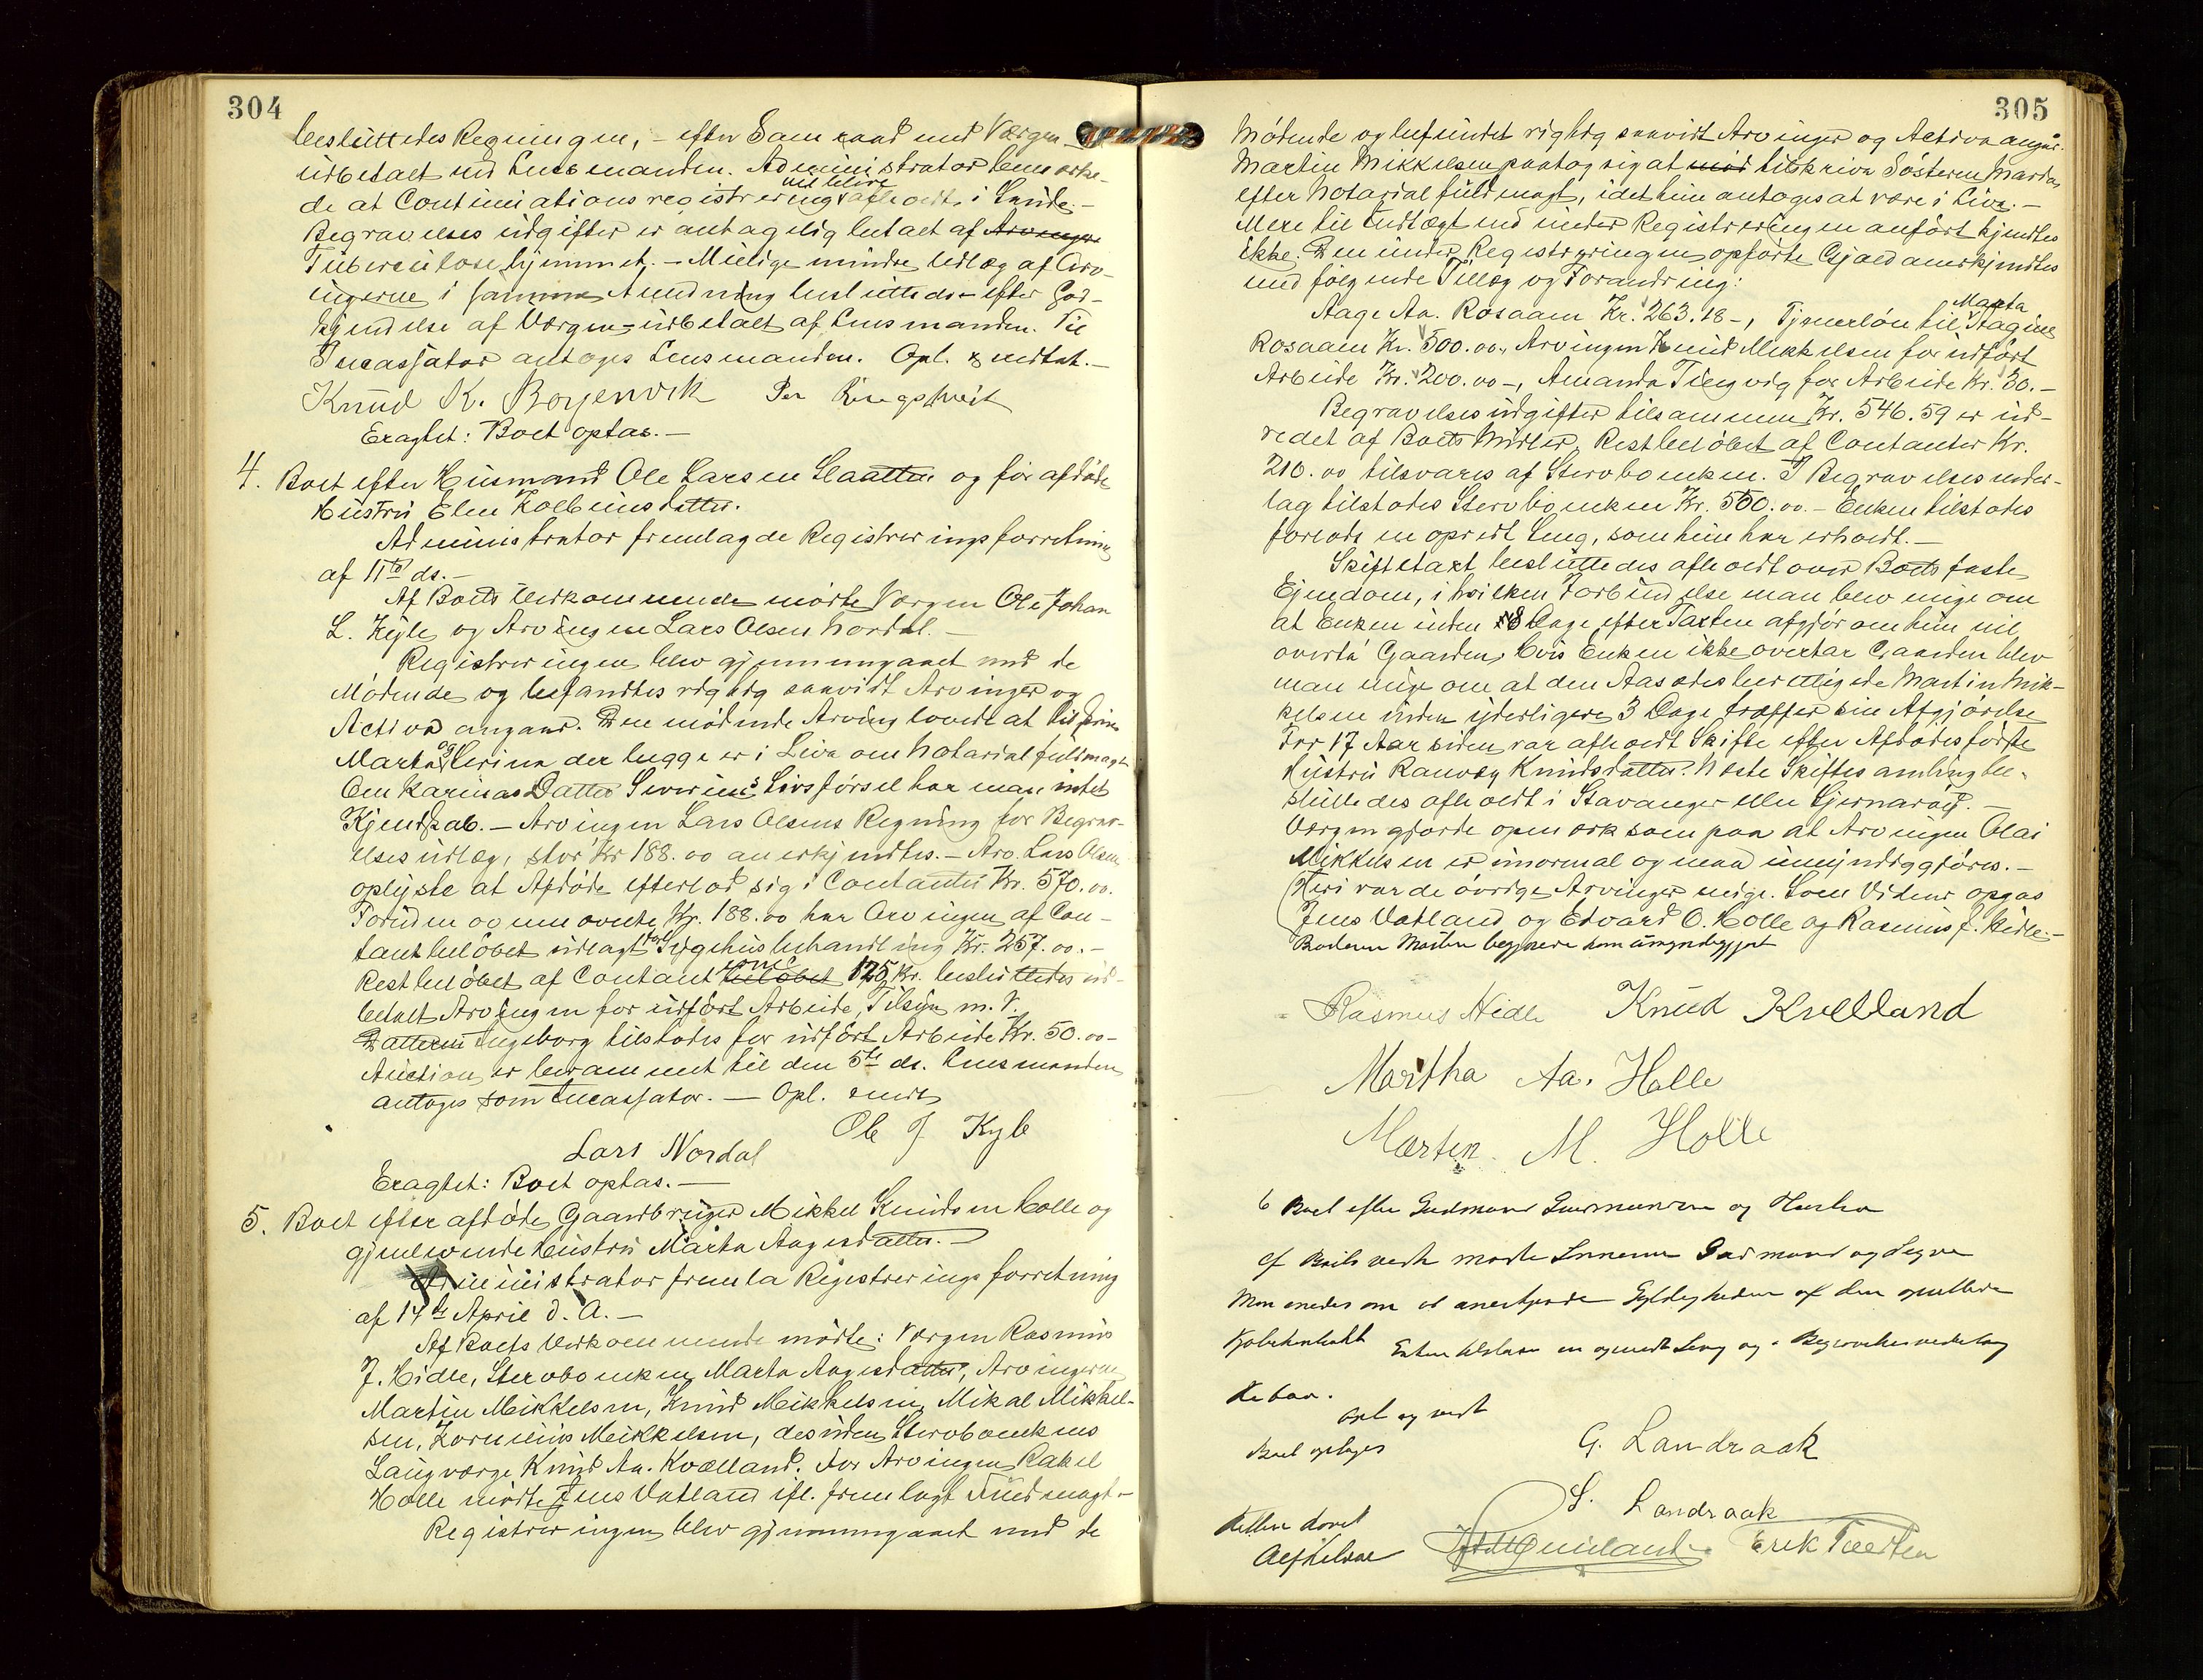 304
besluttedes Regningen, - efter Samraad med Værgen -
udbetalt ved Lensmanden. Administrator bemærke-
de at Continiationsregistrering vil blive afholdt i Sande. -
Begravelses udgifter er antagelig betalt af Arvinger
Tuberculosehjemmet. - Mulige mindre Udlæg af Arv-
ingerne i samme Anledning besluttedes - efter God-
kjendelse af Værgen - udbetalt af Lensmanden. Til
Incassator antoges Lensmanden. Opl. & vedtat. -
Knud K. Borgenvik Per Ringstveit
Eragtet: Boet optas. -
4. Boet efter Husmand Ole Larsen Slaattu og før afdøde
Hustru Elen Kolbeinsdatter.
Administrator fremlagde Registreringsforretning
af 11te ds. -
Af Boets Vedkommende mødte Værgen Ole Johan
L. Kyle og Arvingen Lars Olsen Nordal. -
Registreringen blev gjennemgaaet med de
Mødende og befandtes rigtig saavidt Arvinger og
Activa angaar. Den mødende Arving lovede at tilskrive
Marta og Serina der begge er i Live om Notarialfuldmagt
Om Karinas Datter Severine's Livsførsel har man intet
Kjendskab. - Arvingen Lars Olsens Regning for Begrav-
elses udlæg, stor Kr 188.00 anerkjendtes. - Arv. Lars Olsen
oplyste at Afdøde efterlod sig i Contanter Kr. 570.00.
Foruden ovennævnte Kr. 188.00 har Arvingen af Con-
tantbeløbet udlagt for Sygehusbehandling Kr. 257.00. -
Restbeløbet af Contant beløbet 125 Kr. besluttedes ud-
betalt Arvingen for udført Arbeide, Tilsyn m. V.
Datteren Ingeborg tilstodes for udført Arbeide Kr. 50.00 -
Auction er berammet til den 5te ds. Lensmanden
antoges som Incassator. - Opl. vedt.
Lars Nordal Ole J Kyle
Eragtet: Boet optas. -
5. Boet efter afdøde Gaardbruger Mikkel Knudsen Holle og
gjenlevende Hustru Marta Aagesdatter. -
Administrator fremla Registreringsforretning
af 14de April d. A. -
Af Boets Vedkommende mødte: Værgen Rasmus
J. Hidle, Stervboenken Marta Aagesdatter, Arvingerne
Martin Mikkelsen, Knud Mikkelsen, Mikal Mikkel-
sen, Kornelius Mikkelsen, desuden Stervboenkens
Laugværge Knud Aa. Kvælland. For Arvingen Rakel
Holle mødte Jens Vatland ifl. fremlagt Fuldmagt -
Registreringen blev gjennemgaaet med de
305
Mødende og befundet rigtig saavidt Arvinger og Activa angår.
Martin Mikkelsen paatog sig at mød tilskrive Søsteren Marta
efter Notarialfuldmagt, idet hun antoges at være i Live. -
Mere til Indtægt end under Registreringen anført kjendtes
ikke. Den under Registreringen opførte Gjæld anerkjendtes
med følgende Tillæg og Forandring:
Aage Aa. Rosaaen Kr. 263.18 -, Tjenerløn til Marta Aagine
Rosaaen Kr. 500.00, Arvingen Knud Mikkelsen for udført
Arbeide Kr. 200.00 -, Amanda Tingvig for Arbeide Kr. 30. -
Begravelsesudgifter tilsammen Kr. 546.59 er ud-
redet af Boets Midler, Restbeløbet af Contanter Kr.
210.00 tilsvares af Stervboenken. I Begravelsesveder-
lag tilstodes Stervboenken Kr. 550.00. - Enken tilstodes
forlods en opredt Seng, som hun har erholdt. -
Skiftetaxt besluttedes afholdt over Boets faste
Ejendom, i hvilken Forbindelse man blev enige om
at Enken inden 8 Dage efter Taxten afgjør om hun vil
overta Gaarden; hvis Enken ikke overtar Gaarden blev
man enige om at den Aasædesberettigede Martin Mik-
kelsen inden yderligere 3 Dage træffer sin Afgjørelse
For 17 Aar siden var afholdt Skifte efter Afdødes første
Hustru Ranveg Knudsdatter. Næste Skiftesamling be-
sluttedes afholdt i Stavanger eller Gjernarøy. -
Værgen gjorde opmerksom paa at Arvingen Olai
Mikkelsen er inormal og maa umyndiggjøres. -
Heri var de øvrige Arvinger enige. Som Vidner opgas
Jens Vatland og Edvard O. Holle og Rasmus J. Hidle. -
Broderen Martin begjærede ham umyndiggjort
Rasmus Hidle Knud Kvelland
Martha Aa. Holle
Marten M. Holle
6 Boet efter Gudmund Gudmundsen og Hustru
Af Boets vedk mødte Sønnerne Gudmund og Sigve
Man enedes om at anerkjende Gyldigheden af den
Enken tilstaaes en opredt Seng og i Begravelsesvederlag
Opl og vedt
Boet optages
G. Landraak
S. Landraak
Retten hævet
Erik Tveden